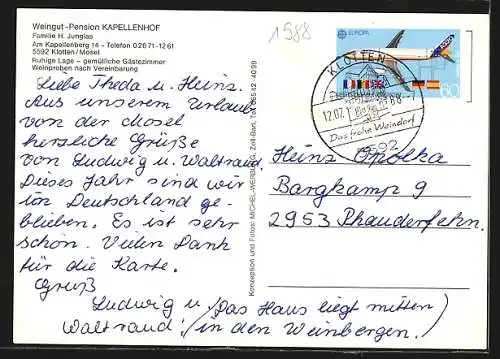 Weingut-Pension KAPELLENHOF
Familie H. Junglas
Am Kapellenberg 14 - Telefon 02671-1261
5592 Klotten/Mosel
Ruhige Lage – gemütliche Gästezimmer
Weinproben nach Vereinbarung
1988
Liebe Theda u. Heinz.
Aus unserem Urlaub
von der Mosel
herzliche Grüße
von Ludwig u. Waltraud.
Dieses Jahr sind wir
in Deutschland ge-
blieben. Es ist sehr
schön. Vielen Dank
für die Karte.
Gruß
Ludwig u.
Waltraud.
(Das Haus liegt mitten
in den Weinbergen.)
Konzeption und Fotos: MICHEL-WERBUNG, Zell-Barl, Tel. 06542-4099
EUROPA
60
KLOTTEN
12.07.
Das frohe Weindorf
5592
Heinz Opolka
Bargkamp 9
2953 Rhauderfehn.